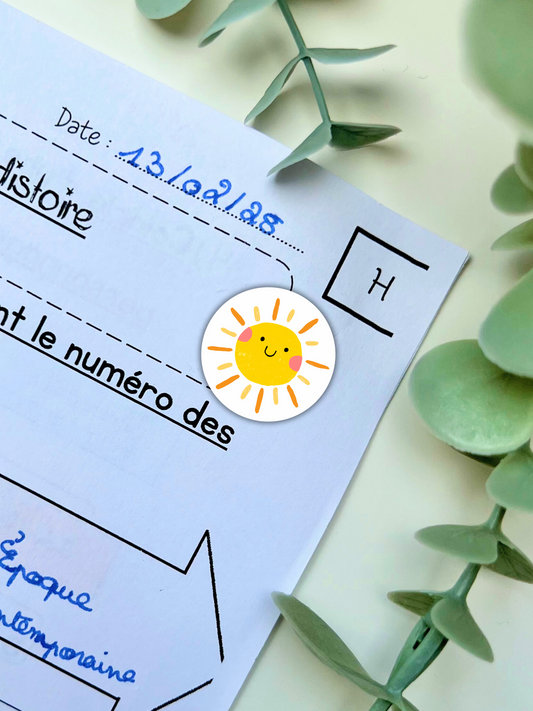 Date : 13/02/28
Histoire
H
nt le numéro des
Époque
ntemporaine